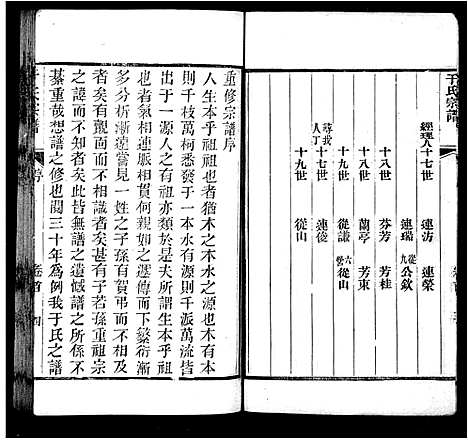 于氏宗譜
經理人十七世 連汸 連榮
連瑞 公欽
十八世 芬芳 芳桂
十八世 蘭亭 芳東
十九世 從謙 從山
尋我人丁 十七世 連俊
十九世 從山
重修宗譜序
人生本乎祖祖也者猶木之本水之源也木有本
則千枝萬柯悉發于一本水有源則千派萬流皆
出于一源人之有祖亦類於是夫所謂生本乎祖
者氣相連脈相貫何親如之遞傳而下繁衍漸
多分析漸遠嘗見一姓之子孫有而不相及
者矣有覿面而不相識者矣有若孫重祖宗
之諱而不知者矣此皆無譜之遺憾譜之所係不
綦重哉想譜之修也閱三十年為例我于氏之譜
于氏宗譜 序 卷首 四